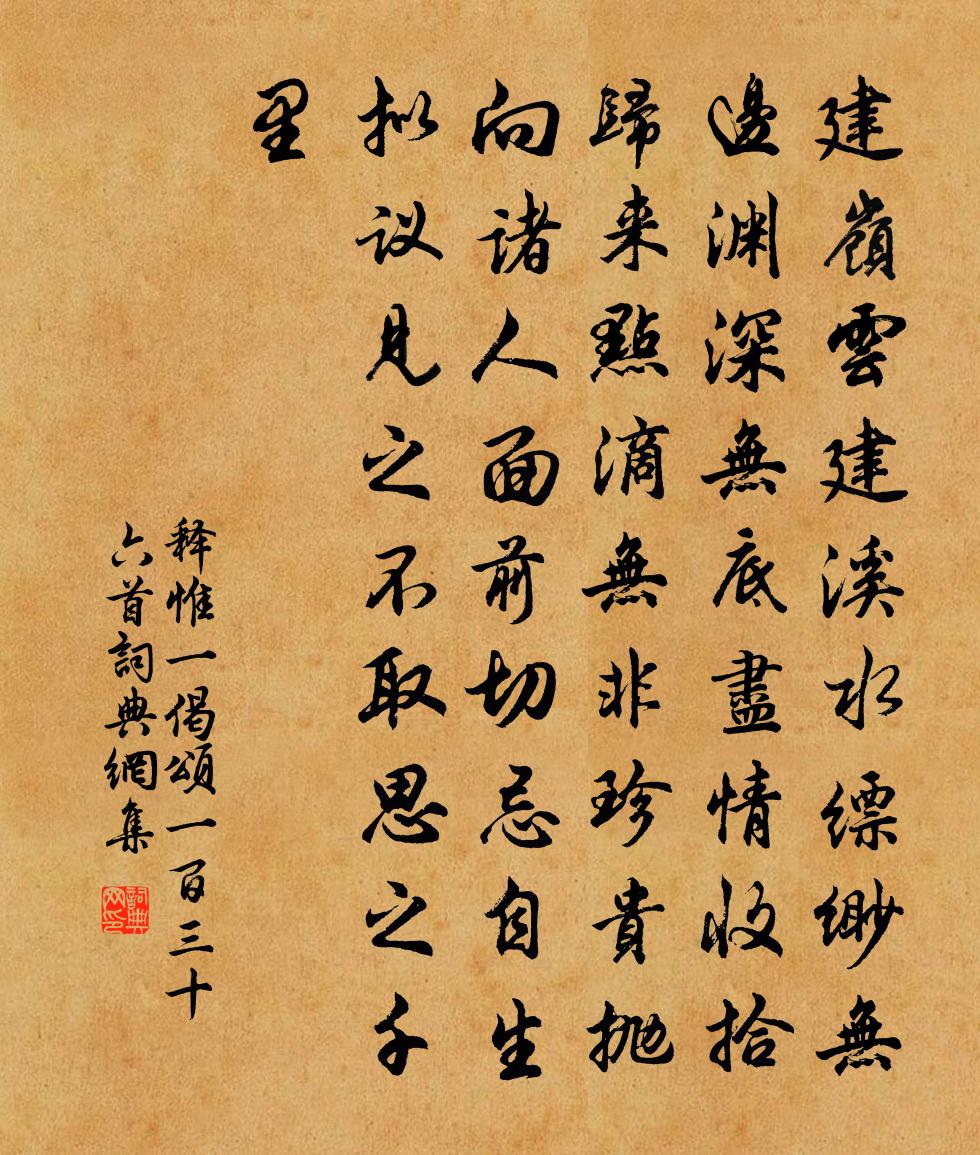 建嶺雲建溪水縹緲無
邊渊深無底盡情收拾
歸来點滴無非珍貴抛
向諸人面前切忌自生
拟议见之不取思之千
里
释惟一偈頌一百三十
六首詞典網集
詞典网印